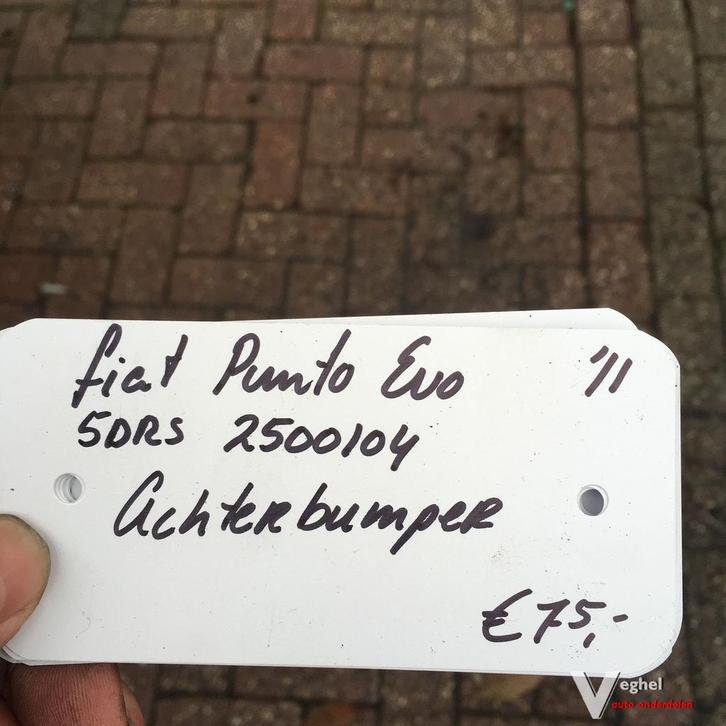 fiat Punto Evo '11
5DRS 2500104
Achterbumper
€75,-
Veghel
auto onderdelen